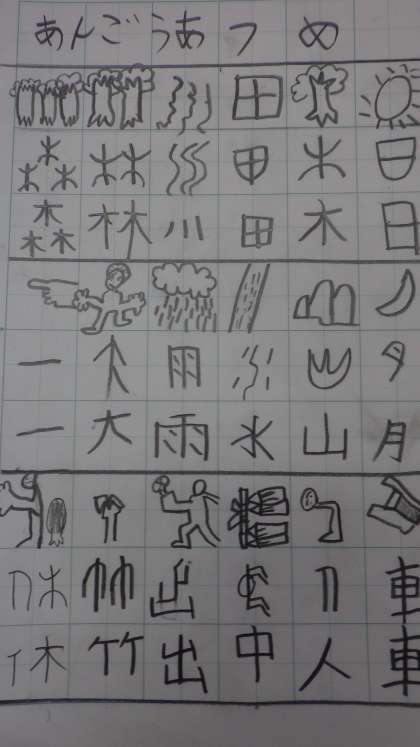 あんごうあつめ
森林川田木日
一大雨水山月
休竹出中人車